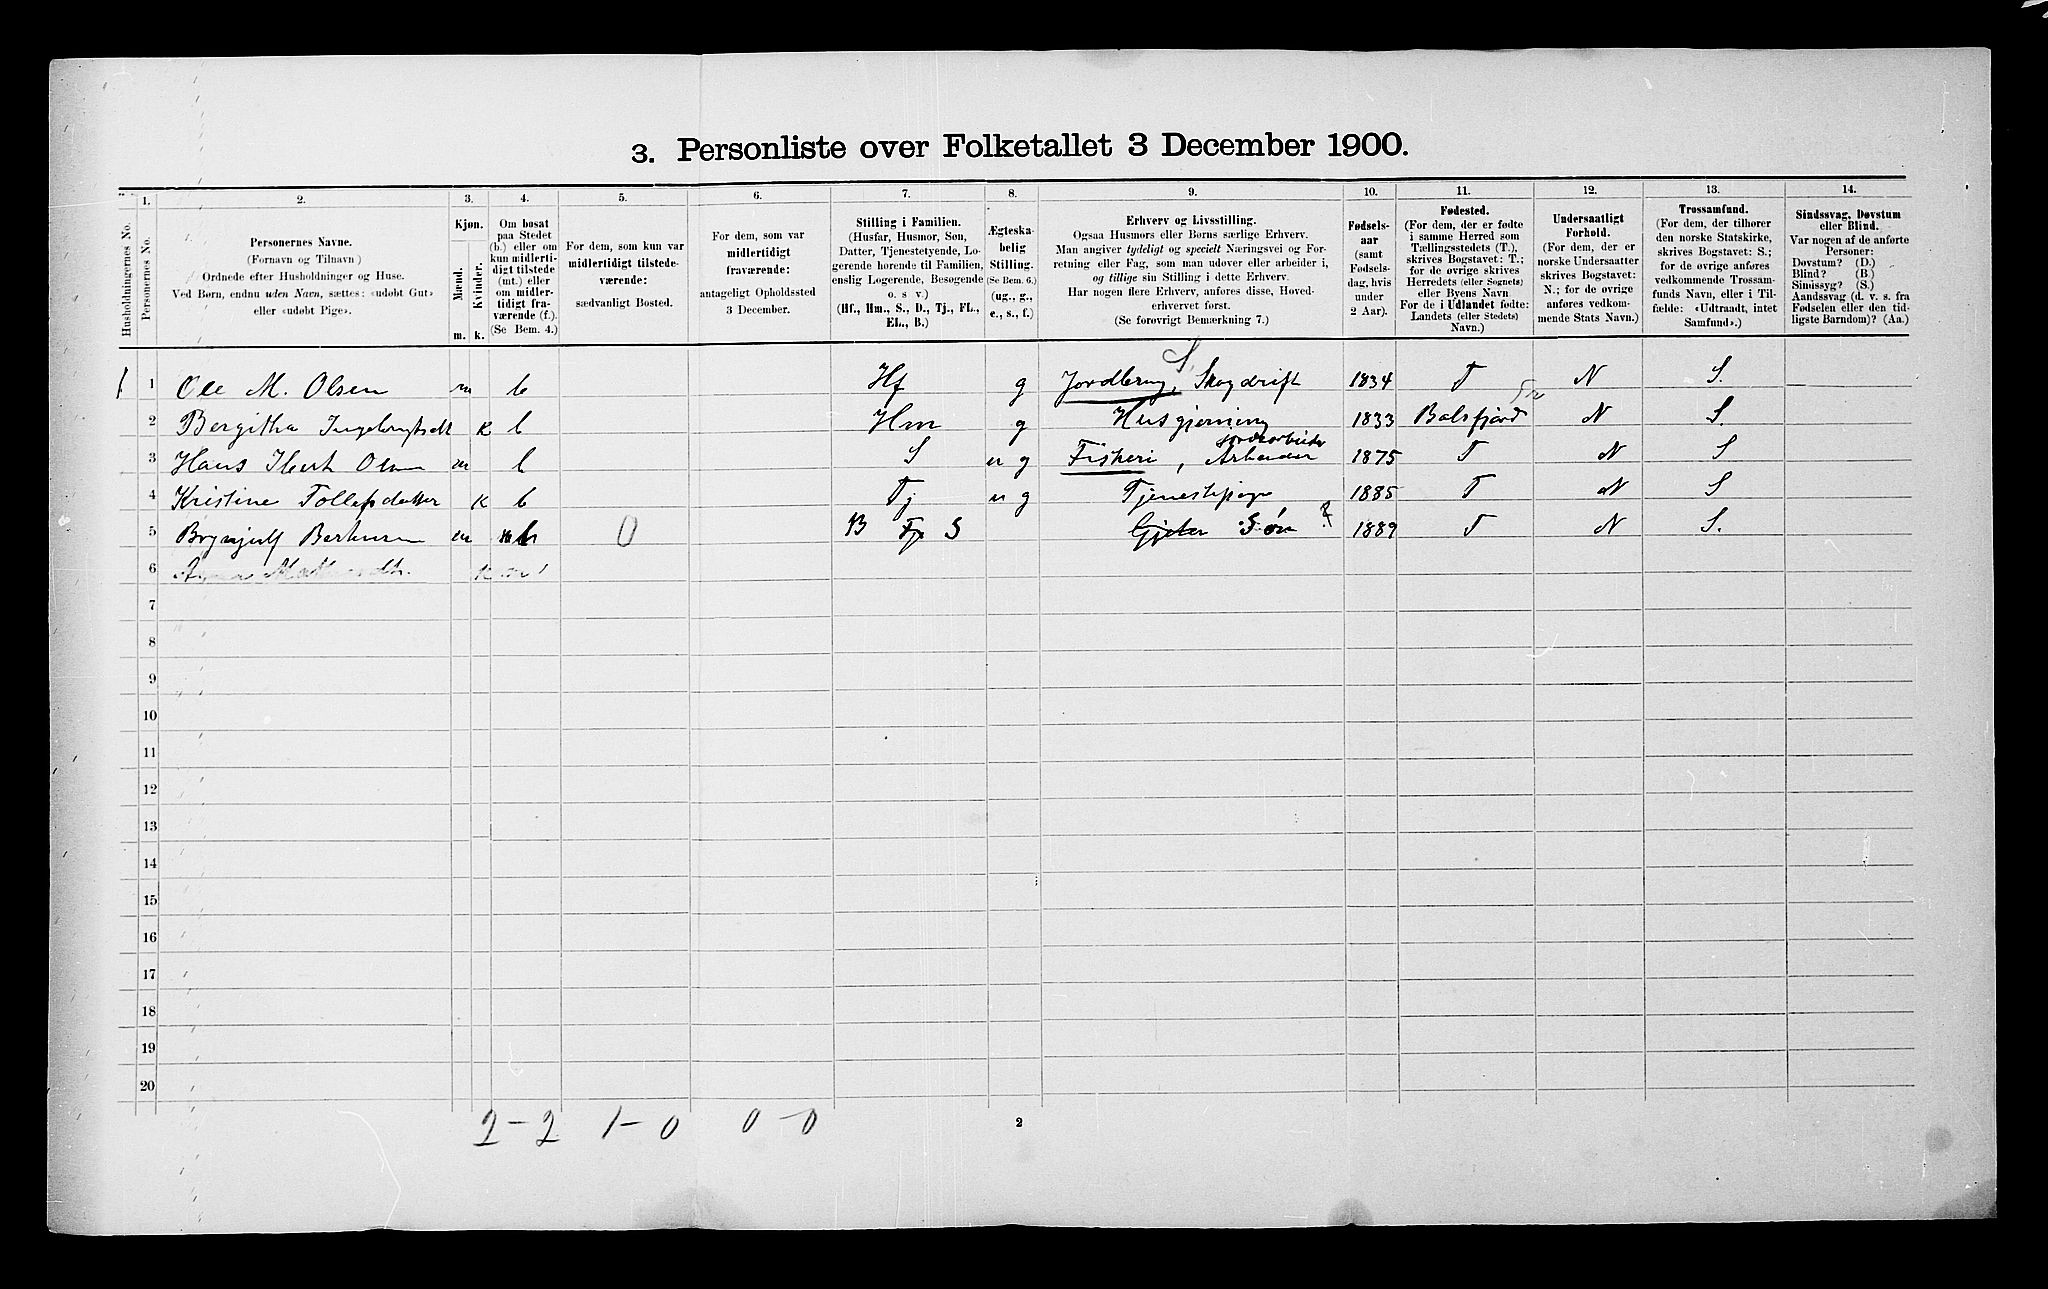 3. Personliste over Folketallet 3 December 1900.
Husholdningernes No.
1. Personernes No.
2. Personernes Navne.
(Fornavn og Tilnavn)
Ordnede efter Husholdninger og Huse.
Ved Børn, endnu uden Navn, sættes: «udøbt Gut»
eller «udøbt Pige».
3. Kjøn.
Mænd. m.
Kvinder. k.
4. Om bosat
paa Stedet
(b.) eller om
kun midlerti-
digt tilstede
(mt.) eller
om midler-
tidigt fra-
værende (f.).
(Se Bem. 4.)
5. For dem, som kun var
midlertidigt tilstede-
værende:
sædvanligt Bosted.
6. For dem, som var
midlertidigt
fraværende:
antageligt Opholdssted
3 December.
7. Stilling i Familien.
(Husfar, Husmor, Søn,
Datter, Tjenestetyende, Lo-
gerende hørende til Familien,
enslig Logerende, Besøgende
o. s v.)
(Hf., Hm., S., D., Tj., FL.,
EL., B.)
8. Ægteska-
belig
Stilling.
(Se Bem. 6.)
(ug., g.,
e., s., f.)
9. Erhverv og Livsstilling.
Ogsaa Husmors eller Børns særlige Erhverv.
Man angiver tydeligt og specielt Næringsvei og For-
retning eller Fag, som man udøver eller arbeider i,
og tillige sin Stilling i dette Erhverv.
Har nogen flere Erhverv, anføres disse, Hoved-
erhvervet først.
(Se forøvrigt Bemærkning 7.)
10. Fødsels-
aar
(samt
Fødsels-
dag, hvis
under
2 Aar).
11. Fødested.
(For dem, der er fødte
i samme Herred som
Tællingsstedets (T.),
skrives Bogstavet: T.;
for de øvrige skrives
Herredets (eller Sognets)
eller Byens Navn
For de i Udlandet fødte:
Landets (eller Stedets)
Navn.)
12. Undersaatligt
Forhold.
(For dem, der er
norske Undersaatter
skrives Bogstavet:
N.; for de øvrige
anføres vedkom-
mende Stats Navn.)
13. Trossamfund.
(For dem, der tilhører
den norske Statskirke,
skrives Bogstavet: S.;
for de øvrige anføres
vedkommende Trossam-
funds Navn, eller i Til-
fælde: «Udtraadt, intet
Samfund».)
14. Sindssvag, Døvstum
eller Blind.
Var nogen af de anførte
Personer:
Døvstum? (D.)
Blind? (B.)
Sinnssyg? (S.)
Aandssvag (d. v. s. fra
Fødselen eller den tid-
ligste Barndom)? (Aa.)
1 1 Ole M. Olsen m b Hf g Jordbrug, S. Skogdrift 1834 T N S.
2 Bergitha Ingebrigtsdt K b Hm g Husgjerning 1833 Balsfjord N S.
3 Hans Olsen m b S ug Fiskeri, Jordarbeider Arbeider 1875 T N S
4 Kristine Tollefsdatter K b Tj ug Tjenestepige 1885 T N S
5 Brynjulf m b 0 B Tj S Gjeter Søn 1889 T N S.
6 K
7
8
9
10
11
12
13
14
15
16
17
18
19
20
2-2 1-0 0-0
2